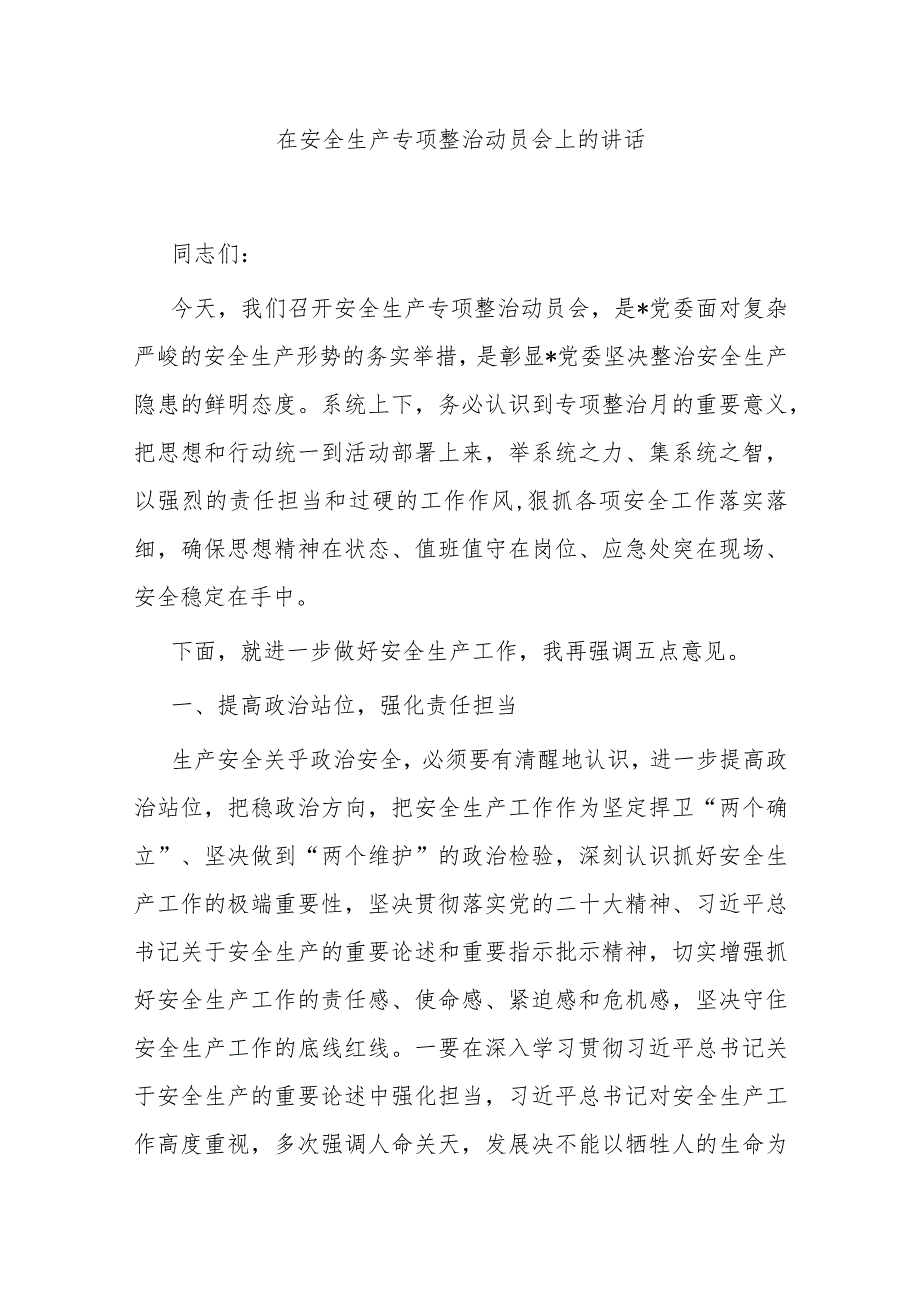 在安全生产专项整治动员会上的讲话
同志们：
今天，我们召开安全生产专项整治动员会，是*党委面对复杂
严峻的安全生产形势的务实举措，是彰显*党委坚决整治安全生产
隐患的鲜明态度。系统上下，务必认识到专项整治月的重要意义，
把思想和行动统一到活动部署上来，举系统之力、集系统之智，
以强烈的责任担当和过硬的工作作风,狠抓各项安全工作落实落
细，确保思想精神在状态、值班值守在岗位、应急处突在现场、
安全稳定在手中。
下面，就进一步做好安全生产工作，我再强调五点意见。
一、提高政治站位，强化责任担当
生产安全关乎政治安全，必须要有清醒地认识，进一步提高政
治站位，把稳政治方向，把安全生产工作作为坚定捍卫“两个确
立”、坚决做到“两个维护”的政治检验，深刻认识抓好安全生
产工作的极端重要性，坚决贯彻落实党的二十大精神、习近平总
书记关于安全生产的重要论述和重要指示批示精神，切实增强抓
好安全生产工作的责任感、使命感、紧迫感和危机感，坚决守住
安全生产工作的底线红线。一要在深入学习贯彻习近平总书记关
于安全生产的重要论述中强化担当，习近平总书记对安全生产工
作高度重视，多次强调人命关天，发展决不能以牺牲人的生命为